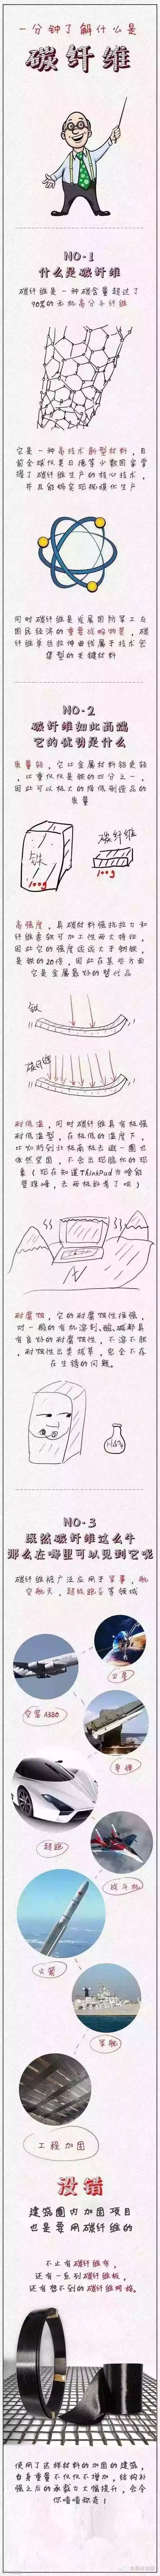 一分钟了解什么是
碳纤维
NO.1
什么是碳纤维
碳纤维是一种碳含量超过了
90%的无机高分子纤维
它是一种高技术新型材料，目
前全球仅美日德等少数国家掌
握了碳纤维生产的核心技术，
并且能够实现规模化生产
同时碳纤维是发展国防军工与
国民经济的重要战略物资，碳
纤维单丝拉伸曲线属于技术密
集型的关键材料
NO.2
碳纤维如此高端
它的优势是什么
质量轻，它比金属材料铝更轻
，比重仅仅是铁的四分之一，
因此可以极大的降低制造品的
质量
铁
100g
碳纤维
100g
高强度，具碳材料强抗拉力和
纤维柔软可加工性两大特征，
因此它的强度远远大于钢铁，
是铁的20倍，因此在某些方面
它是金属最好的替代品
铁
碳纤维
耐低温，同时碳纤维具有极强
耐低温型，在极低的温度下，
比如特别北极南极去逛一圈也
依然坚固，不会出现脆化的现
象（现在知道ThinkPad为啥能
登珠峰，去两极科考了吧）
耐腐蚀，它的耐腐蚀性很强，
对一般的有机溶剂、酸、碱都具
有良好的耐腐蚀性，不溶不胀
，耐蚀性出类拔萃，完全不存
在生锈的问题。
NO.3
既然碳纤维这么牛
那么在哪里可以见到它呢
碳纤维被广泛应用于军事，航
空航天，超级跑车等领域
卫星
空客A380
导弹
超跑
战斗机
火箭
军舰
工程加固
没错
建筑圈内加固项目
也是要用碳纤维的
不止有碳纤维布，
还有一系列碳纤维板，
还有想不到的碳纤维网格。
使用了这样材料的加固的建筑，
自身重量不仅仅不增加，结构补
强之后的承载力大幅提升，会令
你啧啧称奇！